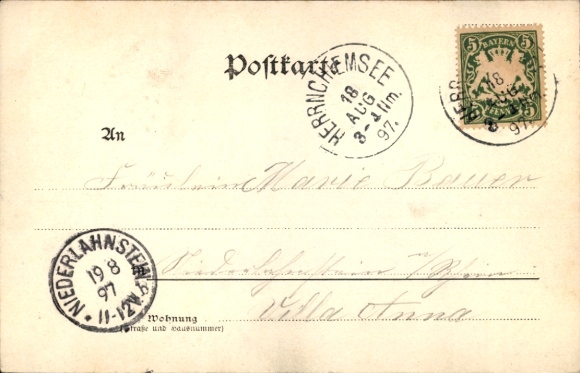 Postkarte
HERRNCHIEMSEE
18
AUG
3-4 Nm.
97.
5 BAYERN 5
18
AUG
97.
An
Fräulein Marie Bauer
Niederlahnstein a/Rhein
Villa Anna
NIEDERLAHNSTEIN
19 8
97
11-12V
Wohnung
(Straße und Hausnummer)